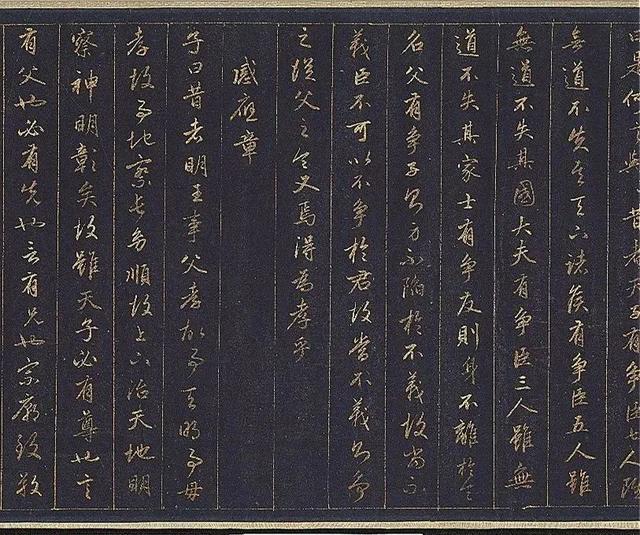 昔者天子有争臣七人雖
無道不失其天下諸侯有争臣五人雖
無道不失其國大夫有争臣三人雖無
道不失其家士有争友則身不離於令
名父有争子則身不陷於不義故當不
義臣不可以不争於君故當不義則争
之從父之令又焉得為孝乎
感應章
子曰昔者明王事父孝故事天明事母
孝故事地察長幼順故上下治天地明
察神明彰矣故雖天子必有尊也言
有父也必有先也言有兄也宗廟致敬